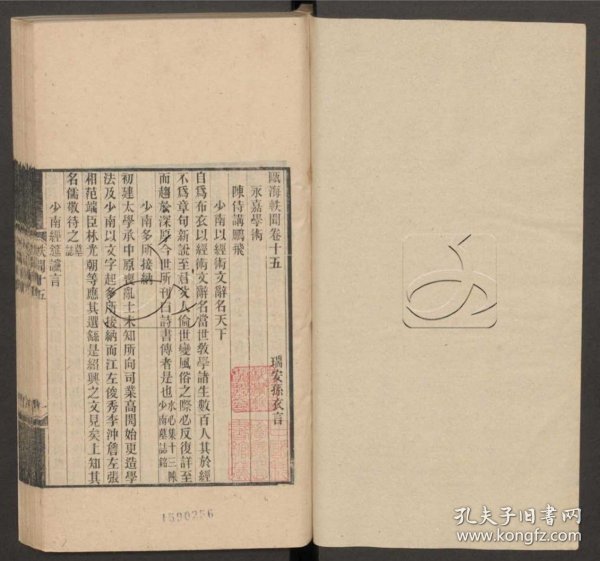 甌海軼聞卷十五
瑞安孫衣言
永嘉學術
陳侍講鵬飛
少南以經術文辭名天下
自爲布衣以經術文辭名當世敎學諸生數百人其於經
不爲章句新說至君父人倫世變風俗之際必反復詳至
而趨於深厚今世所刊曰詩書傳者是也水心集十三陳少南墓誌銘
少南多所接納
初建太學承中原喪亂士未知所向司業高閌始更造學
法及少南以文字起多所接納而江左俊秀李沖詹左張
相范端臣林光朝等應其選繇是紹興之文見矣上知其
名儒敬待之墓誌
少南經筵讜言
1590256
孔夫子旧书网
www.kongfz.com